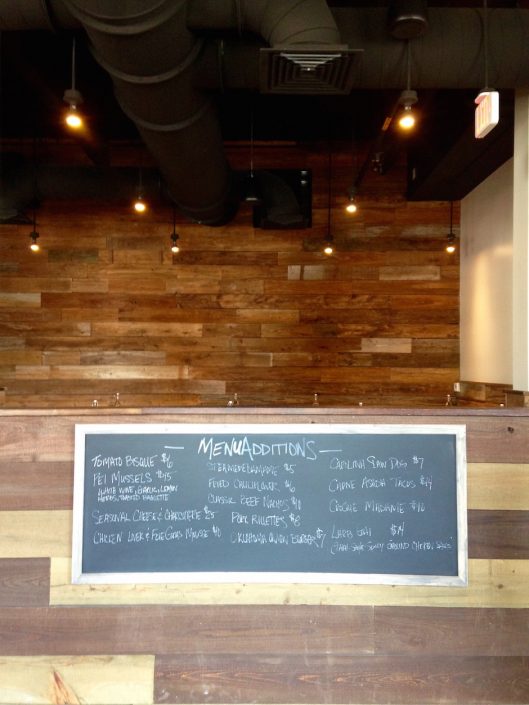 MENU ADDITIONS
TOMATO BISQUE $6
PEI MUSSELS $15
WHITE WINE, GARLIC, LEMON
HERBS, TOASTED BAGUETTE
SEASONAL CHEESE & CHARCUTERIE 25
CHICKEN LIVER & FOIE GRAS MOUSSE $10
EDAMAME $5
FRIED CAULIFLOWER $6
CLASSIC BEEF NACHOS $10
PORK RILLETTES $8
OKLAHOMA ONION BURGER $7
CAROLINA SLAW DOG $7
CARNE ASADA TACOS $14
CROQUE MADAME $10
LARB GAI $14
GROUND CHICKEN